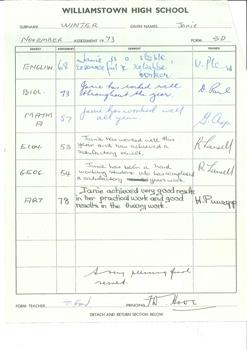 WILLIAMSTOWN HIGH SCHOOL
SURNAME WINTER GIVEN NAMES Janie
November ASSESSMENT 1973 FORM 5D
ENGLISH 68 Janie is a stable, resourceful & reliable worker
BIOL. 73 Janie has worked well throughout the year
MATHS A 57 Janie has worked well all year.
ECON. 53 Janie has worked well this year and has achieved a satisfactory result.
GEOG 54 Janie has been a hard working student who has completed a satisfactory year's work.
ART 78 Janie achieved very good results in her practical work and good results in the theory work.
A very pleasing final result.
FORM TEACHER PRINCIPAL
DETACH AND RETURN SECTION BELOW